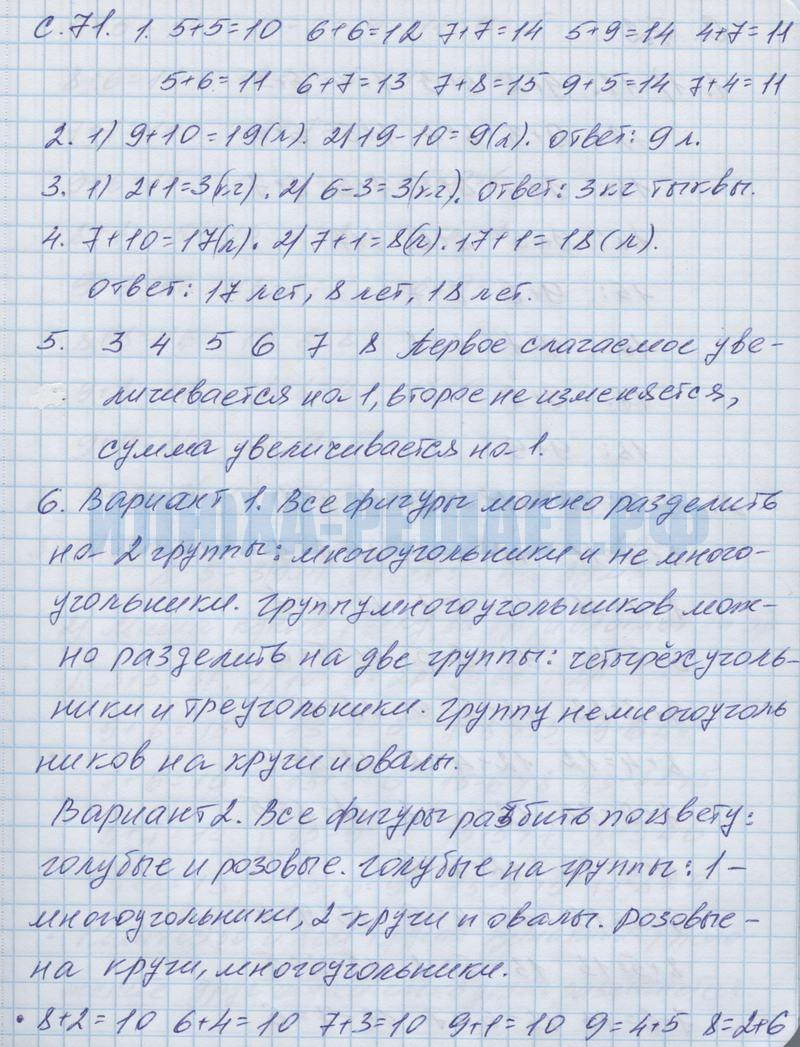 с.71. 1. 5+5=10 6+6=12 7+7=14 5+9=14 4+7=11
5+6=11 6+7=13 7+8=15 9+5=14 7+4=11
2. 1) 9+10=19(л). 2) 19-10=9(л). Ответ: 9 л.
3. 1) 2+1=3(кг). 2) 6-3=3(кг). Ответ: 3 кг тыквы.
4. 7+10=17(л). 2) 7+1=8(л). 17+1=18(л).
Ответ: 17 лет, 8 лет, 18 лет.
5. 3 4 5 6 7 8 Первое слагаемое уве-
личивается на 1, второе не изменяется,
сумма увеличивается на 1.
6. Вариант 1. Все фигуры можно разделить
ИЛЮХА-РЕШАЕТ.РФ
на 2 группы: многоугольники и не много-
угольники. Группу многоугольников мож-
но разделить на две группы: четырёхуголь-
ники и треугольники. Группу немногоуголь
ников на круги и овалы.
Вариант 2. Все фигуры разбить по цвету:
голубые и розовые. Голубые на группы: 1 –
многоугольники, 2 - круги и овалы. Розовые -
на круги, многоугольники.
• 8+2=10 6+4=10 7+3=10 9+1=10 9=4+5 8=2+6